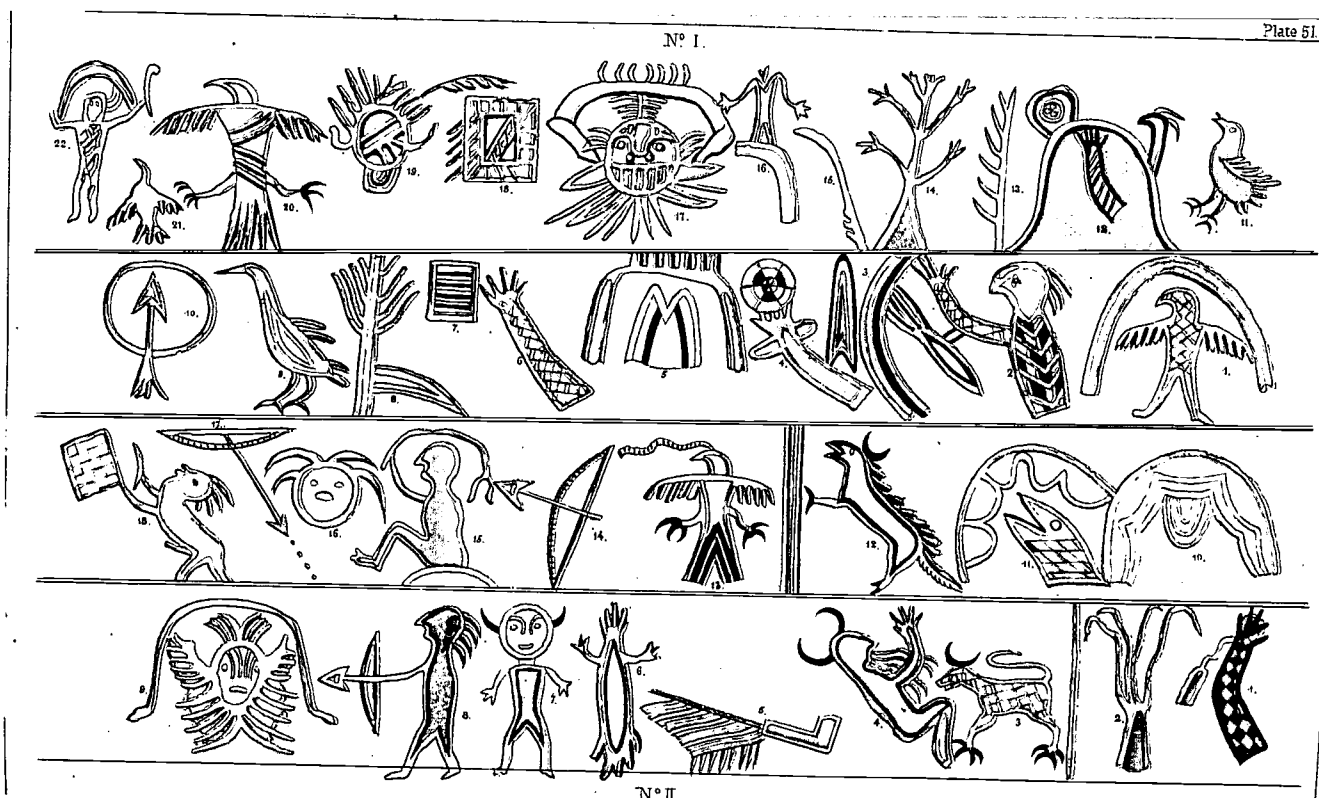 Plate 51.
Nº I.
22. 21. 20. 19. 18. 17. 16. 15. 14. 13. 12. 11.
10. 9. 8. 7. 6. 5. 4. 3. 2. 1.
18. 17. 16. 15. 14. 13. 12. 11. 10.
9. 8. 7. 6. 5. 4. 3 2. 1.
Nº II